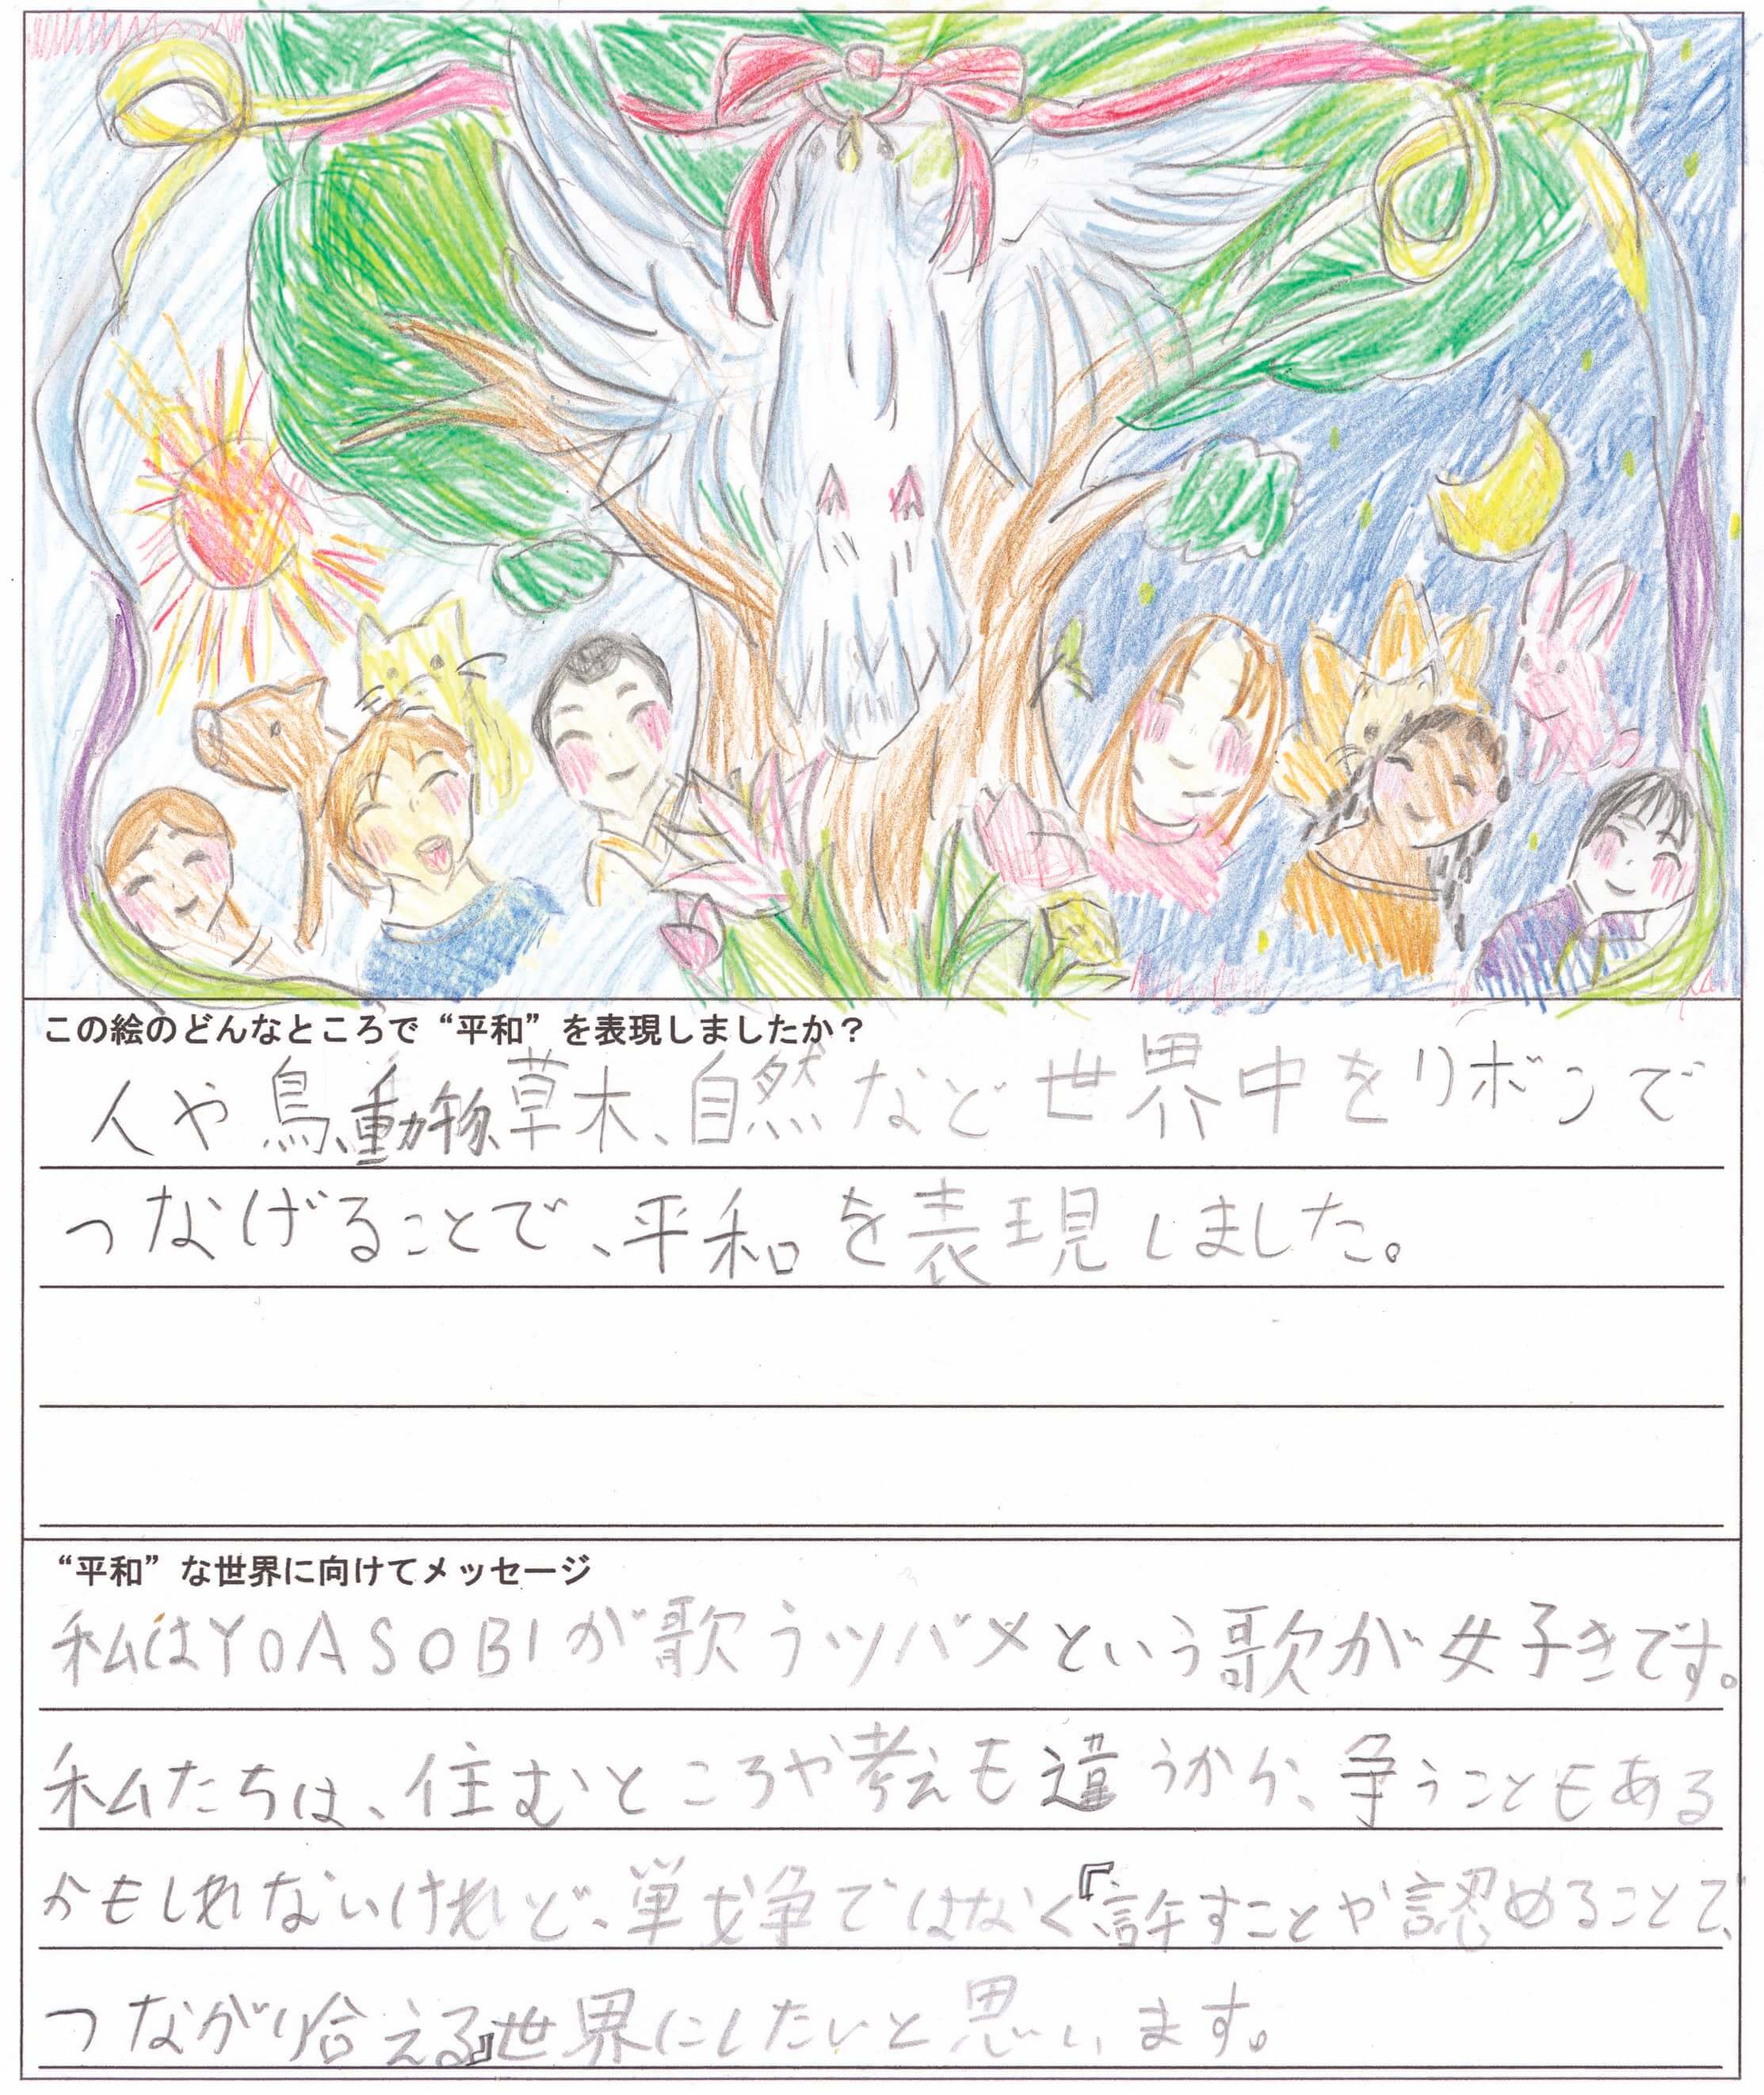 この絵のどんなところで“平和”を表現しましたか？
人や鳥、動物、草木、自然など世界中をリボンで
つなげることで、平和を表現しました。
“平和”な世界に向けてメッセージ
私はYOASOBIが歌うツバメという歌が好きです。
私たちは、住むところや考えも違うから、争うこともある
かもしれないけれど、戦争ではなく『許すことや認めることで、
つながり合える』世界にしたいと思います。